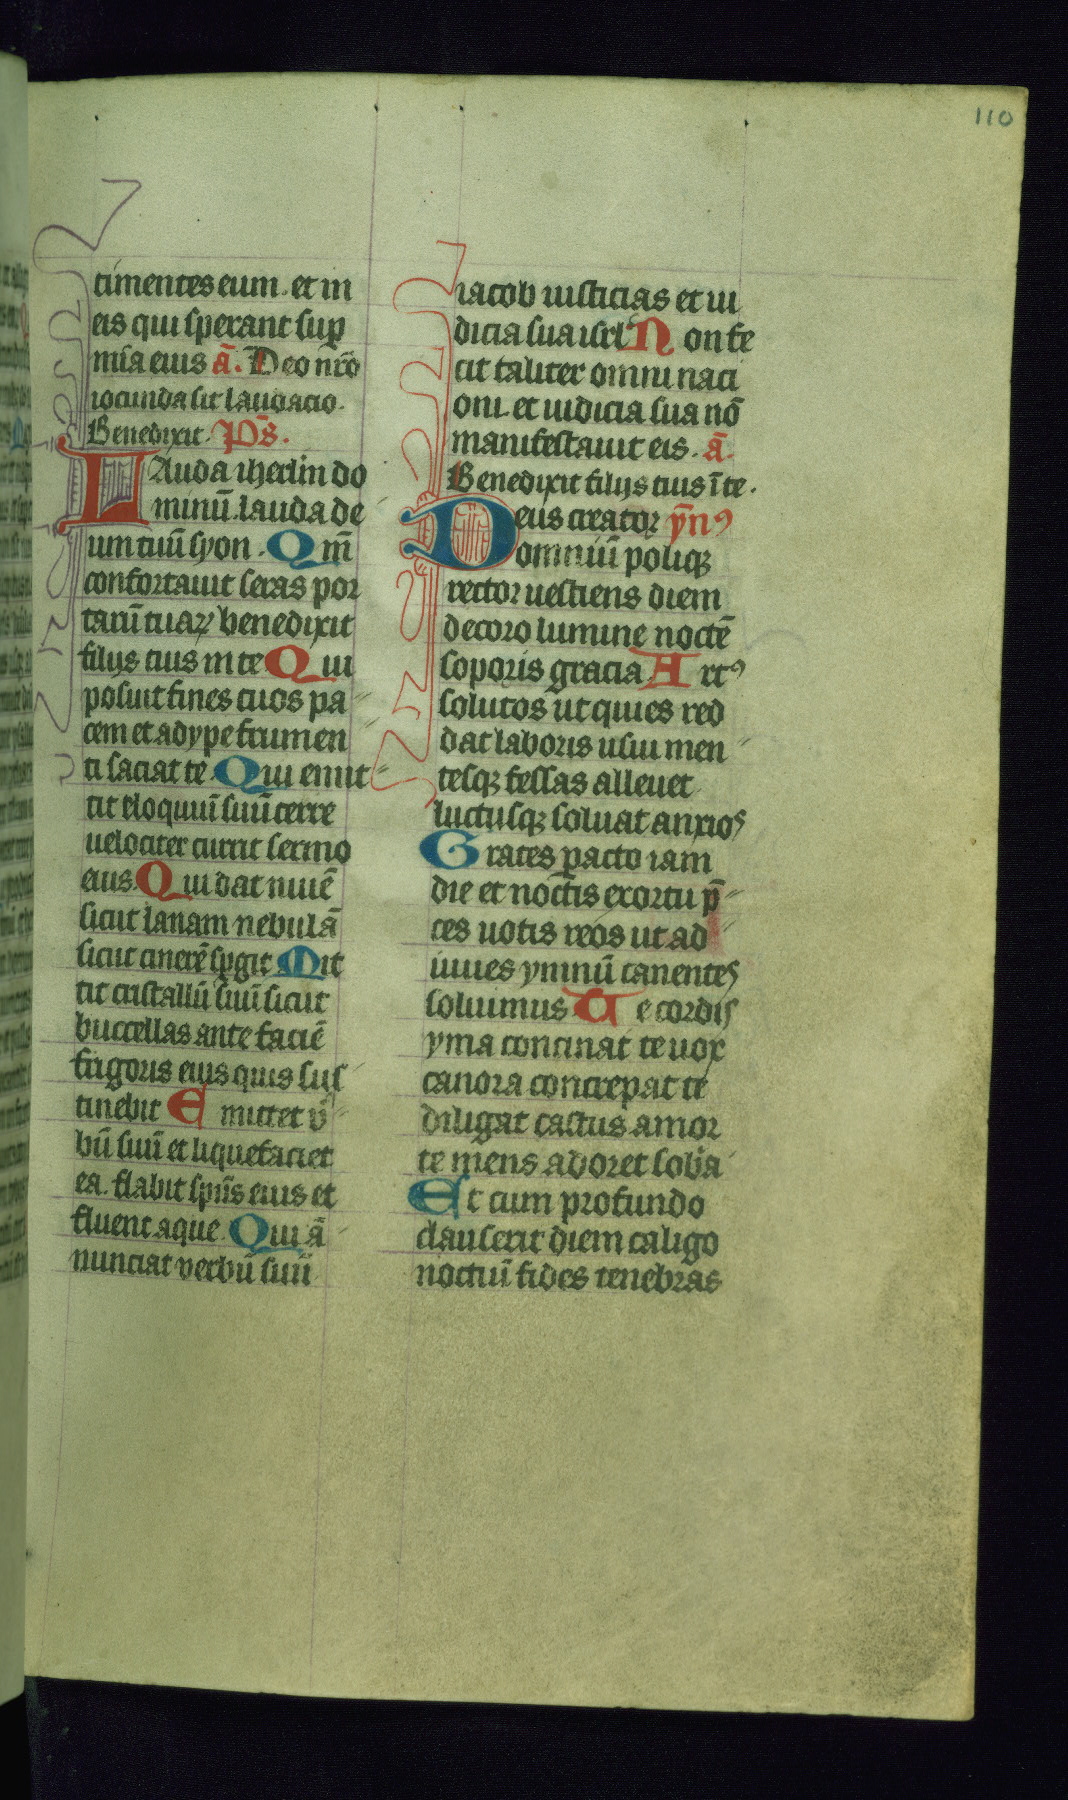 110
timentes eum. et in
eis qui sperant sup̱
mīa eius ā. Deo nr̄o
iocunda sit laudacio.
Benedixit. Ps̄.
Lauda iherlm̄ do
minū. lauda de
um tuū syon. Qm̄
confortauit seras por
tarū tuaꝝ benedixit
filijs tuis in te Qui
posuit fines tuos pa
cem et adype frumen
ti saciat te. Qui emit
tit eloquiū suū terre
uelociter currit sermo
eius. Qui dat niuē
sicut lanam nebulā
sicut cinerē sp̱git Mit
tit cristallū suū sicut
buccellas ante faciē
frigoris eius quis sus
tinebit Emittet v̄
bū suū et liquefaciet
ea. flabit spūs eius et
fluent aque. Qui ā
nunciat verbū suū
iacob iusticias et iu
dicia sua isrl̄ Non fe
cit taliter omni naci
oni. et iudicia sua nō
manifestauit eis. ā.
Benedixit filijs tuis ī te.
Deus creator ȳnꝰ
omniū poliqꝫ
rector uestiens diem
decoro lumine noctē
soporis gracia. Artꝰ
solutos ut quies red
dat laboris usui men
tesqꝫ fessas alleuet
luctusqꝫ soluat anxios
Grates ꝑacto iam
die et noctis exortu p̄
ces uotis reos ut ad
iuues ymnū canentes
soluimus Te cordis
yma concinat te uox
canora concrepat te
diligat castus amor
te mens adoret sob̄a
Et cum profundo
clauserit diem caligo
noctiū fides tenebras